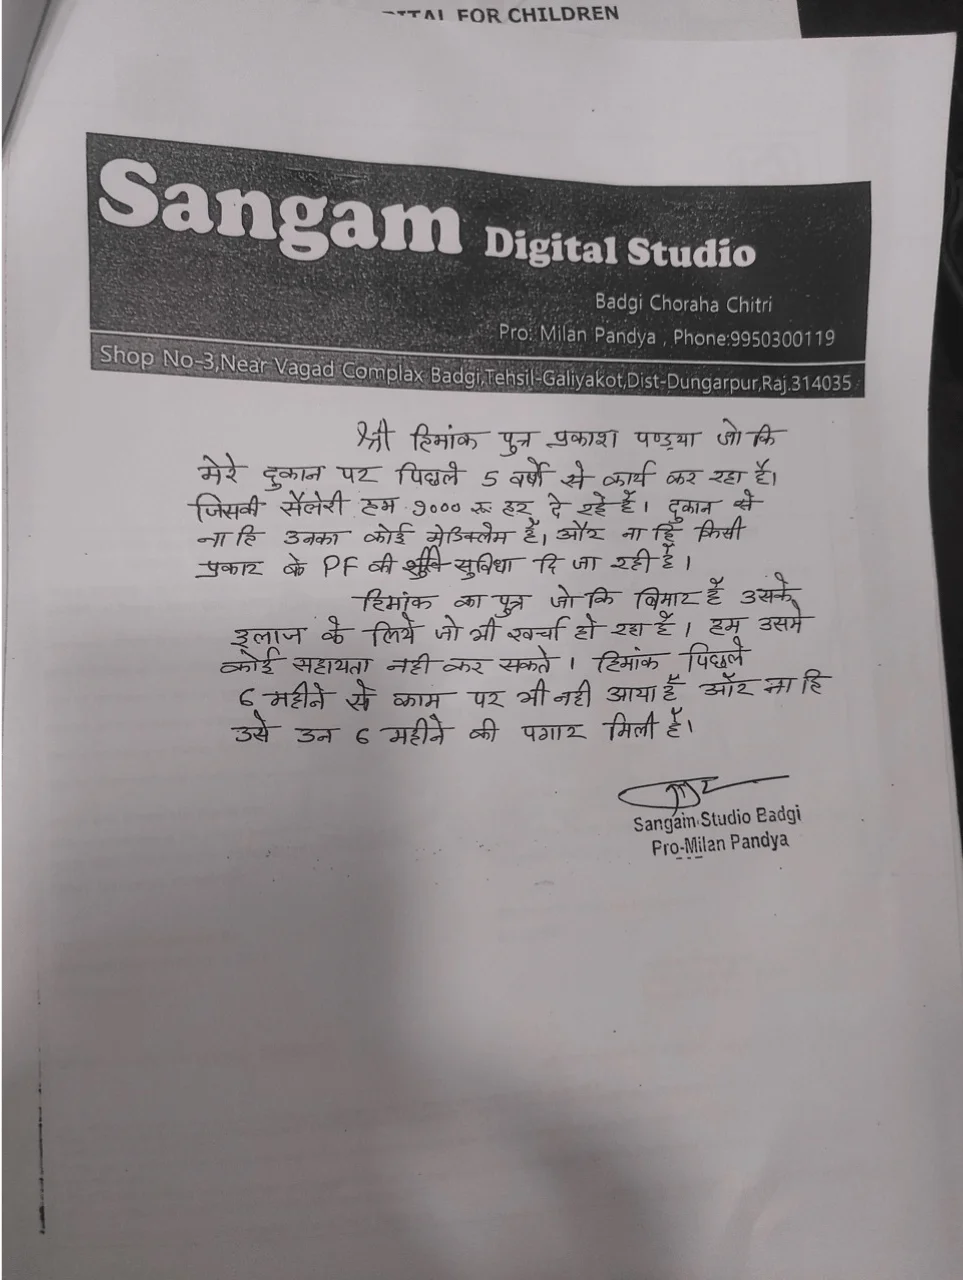 FOR CHILDREN
Sangam Digital Studio
Badgi Choraha Chitri
Pro: Milan Pandya , Phone:9950300119
Shop No-3,Near Vagad Complax Badgi,Tehsil-Galiyakot,Dist-Dungarpur,Raj.314035
श्री हिमांक पुत्र प्रकाश पण्ड्या जो कि
मेरे दुकान पर पिछले 5 वर्षो से कार्य कर रहा है।
जिसकी सैलेरी हम 9000 रू हर दे रहे है। दुकान से
ना हि उनका कोई मेडिक्लेम है, और ना हि किसी
प्रकार के PF की सुविधा दि जा रही है।
हिमांक का पुत्र जो कि बिमार है उसके
इलाज के लिये जो भी खर्चा हो रहा है। हम उसमे
कोई सहायता नही कर सकते। हिमांक पिछले
6 महीने से काम पर भी नही आया है और ना हि
उसे उन 6 महीने की पगार मिली है।
Sangain Studio Badgi
Pro-Milan Pandya